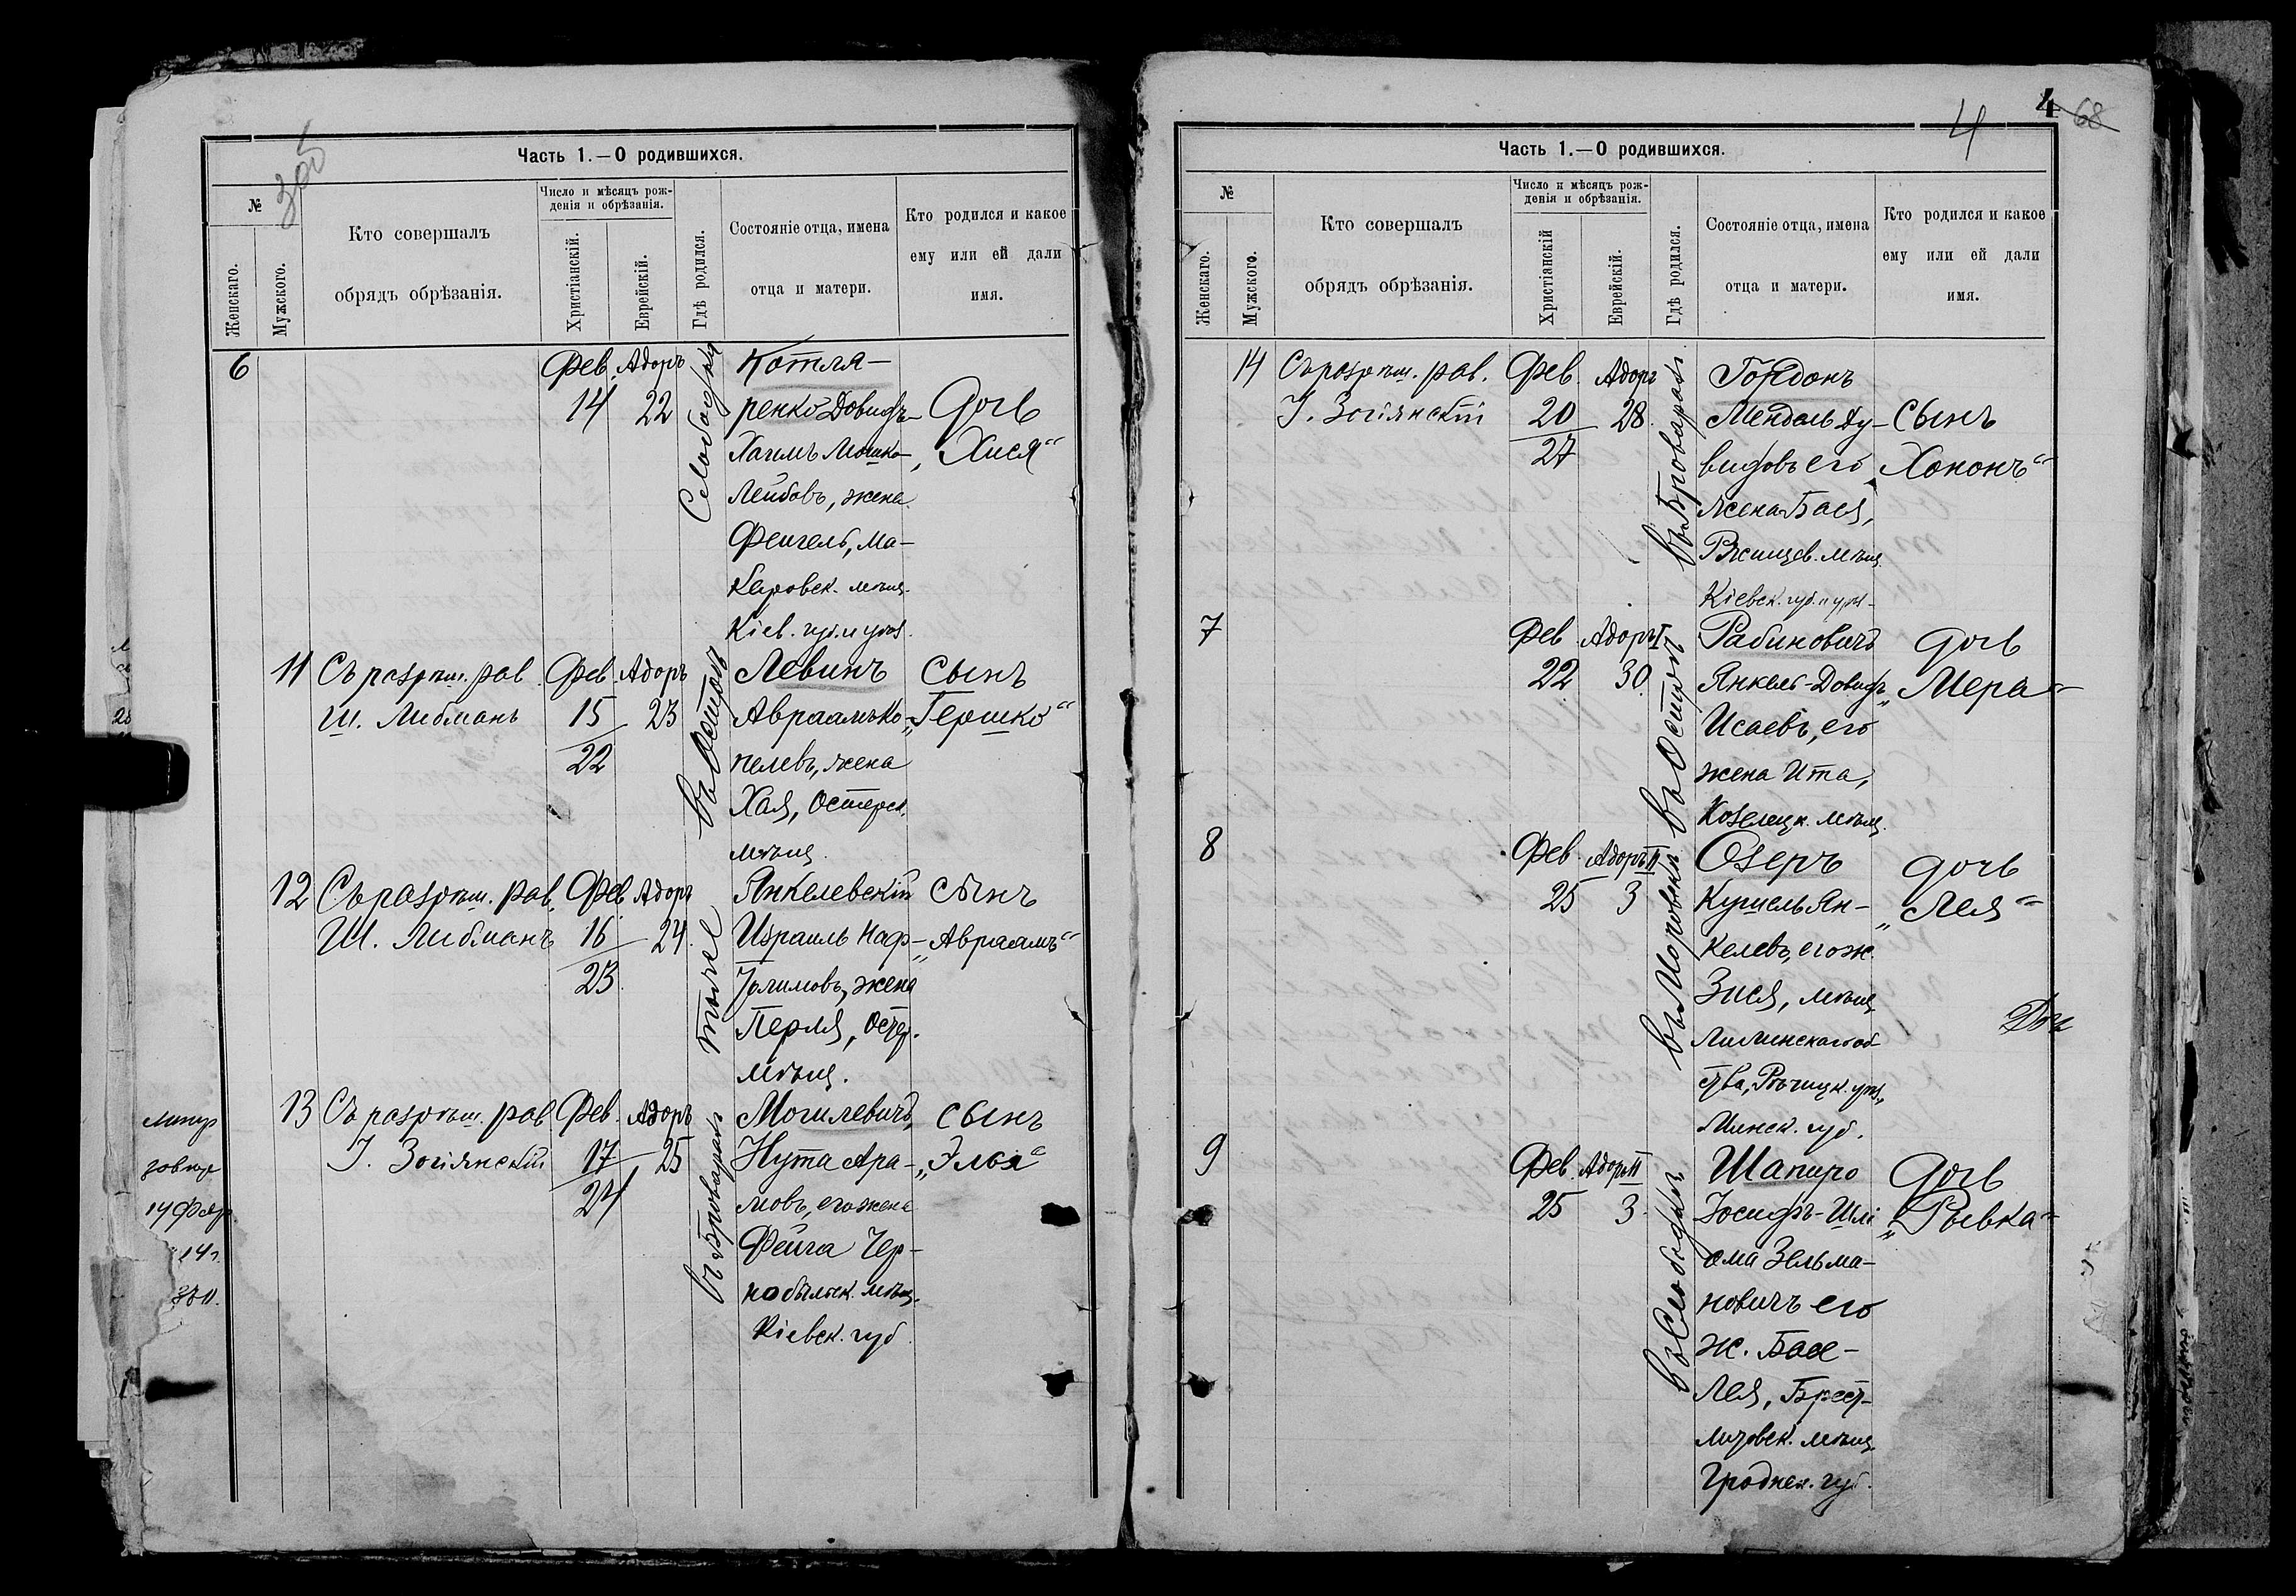 305
Часть 1.—О родившихся.
№
Женскаго.
Мужского.
Кто совершалъ
обрядъ обрѣзанія.
Число и мѣсяцъ рож-
денія и обрѣзанія.
Христіанскій.
Еврейскій.
Гдѣ родился.
Состояніе отца, имена
отца и матери.
Кто родился и какое
ему или ей дали
имя.
6 Фев. Адоръ Котля-
14 22 ренко Довидъ- Дочь
Хаимъ Мошко- „Хися“
Лейбовъ, жена
Фейгель, Ма-
каровск. мѣщ.
Кіев. губ. и уѣз.
Слободка
11 Съ разрѣш. рав. Фев. Адоръ Левинъ Сынъ
Ш. Либманъ 15 23 Авраамъ Ко- „Гершко“
22 пелевъ, жена
Хая, Остерск.
мѣщ.
въ Острѣ
12 Съ разрѣш. рав. Фев. Адоръ Янкелевскій сынъ
Ш. Либманъ 16 24. Израиль Наф- „Авраамъ“
23 толимовъ, жена
Перля, Остер.
мѣщ.
тоже
13 Съ разрѣш. рав. Фев. Адоръ Могилевичъ, сынъ
І. Зогіянскій 17 25 Нута Ара- „Элья“
24 мовъ, его жена
Фейга Чер-
нобыльск. мѣщ.
Кіевск. губ.
въ Броварахъ
4
4 68
Часть 1.—О родившихся.
№
Женскаго.
Мужского.
Кто совершалъ
обрядъ обрѣзанія.
Число и мѣсяцъ рож-
денія и обрѣзанія.
Христіанскій
Еврейскій.
Гдѣ родился.
Состояніе отца, имена
отца и матери.
Кто родился и какое
ему или ей дали
имя.
14 Съ разрѣш. рав. Фев. Адоръ Гордонъ
І. Зогіянскій 20 28. Мендель Ду- Сынъ
27 видовъ его „Хононъ“
жена Бася,
Ржищев. мѣщ.
Кіевск. губ. и уѣз.
въ Броварахъ
7 Фев. Адоръ I Рабиновичъ Дочь
22 30. Янкель-Довидъ „Мера“
Исаевъ, его
жена Ита,
Козелецк. мѣщ.
въ Острѣ
8 Фев. Адоръ II Озеръ дочь
25 3 Кушель Ян- „Лея“
келевъ, его ж.
Зися, мѣщ.
об-
ства, Рѣчицк. уѣз.,
Минск. губ.
въ Моровскѣ
Дочь
9 Фев. Адоръ II Шапиро Дочь
25 3. Іосифъ-Шлі „Рывка“
ома Зельма-
новичъ его
ж. Бася-
Лея, Брест-
литовск. мѣщ.
Гроднен. губ.
въ Слободкѣ